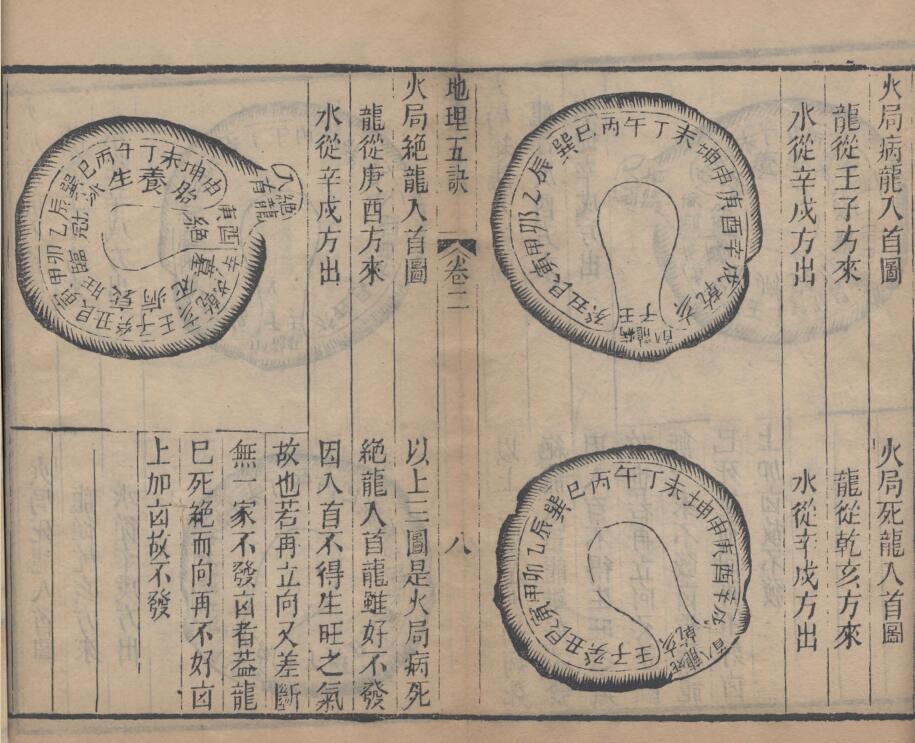 火局病龍入首圖
龍從壬子方來
水從辛戌方出
巳丙午丁未坤申庚酉辛戌乾亥壬子癸丑艮寅甲卯乙辰巽
病龍入首
火局死龍入首圖
龍從乾亥方來
水從辛戌方出
巳丙午丁未坤申庚酉辛戌乾亥壬子癸丑艮寅甲卯乙辰巽
死龍入首
地理五訣
卷二
八
火局絕龍入首圖
龍從庚酉方來
水從辛戌方出
巳丙午丁未坤申庚酉辛戌乾亥壬子癸丑艮寅甲卯乙辰巽
生沐冠臨旺衰病死墓絕胎養
絕龍入首
以上三圖是火局病死
絕龍入首龍雖好不發
因入首不得生旺之氣
故也若再立向又差斷
無一家不發凶者葢龍
巳死絕而向再不好凶
上加凶故不發